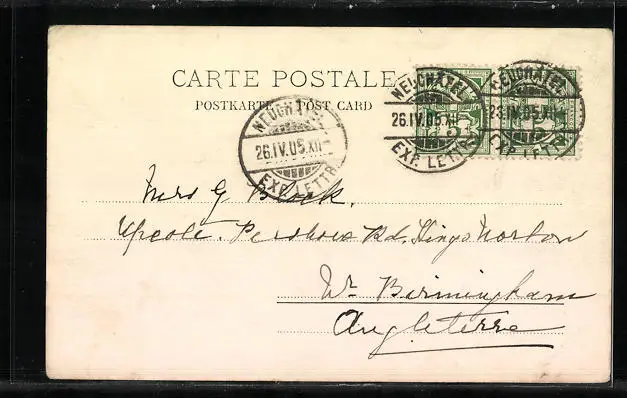 CARTE POSTALE
POSTKARTE POST CARD
NEUCHATEL
26.IV.05.XII
EXP. LETTR.
NEUCHATEL
26.IV.05.XII
EXP. LETTR.
NEUCHATEL
26.IV.05.XII
EXP. LETTR.
5
5
Mrs G Block.
Pershore Rd. Kings Norton
Nr. Birmingham
Angleterre